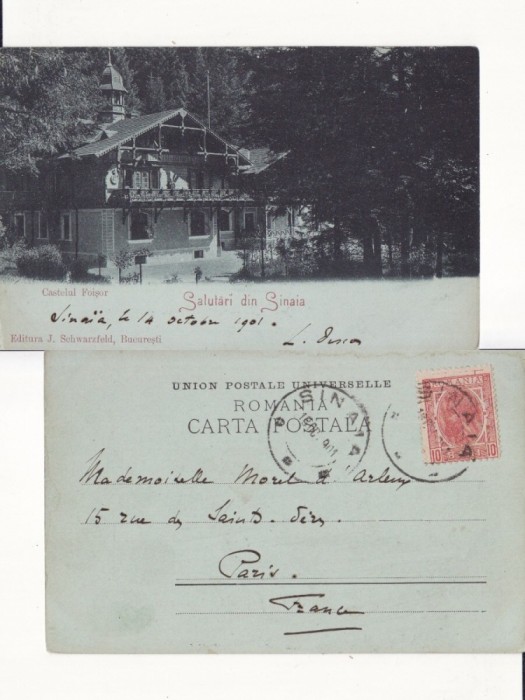 Castelul Foişor
Salutări din Sinaia
Sinaïa, le 14 octobre 1901.
Editura J. Schwarzfeld, Bucureşti
L.
UNION POSTALE UNIVERSELLE
ROMANIA
CARTA POSTALA
SINAIA
SINAIA
ROMANIA
10 10
Mademoiselle Morel d'
15 rue des Saints-Pères.
Paris.
France